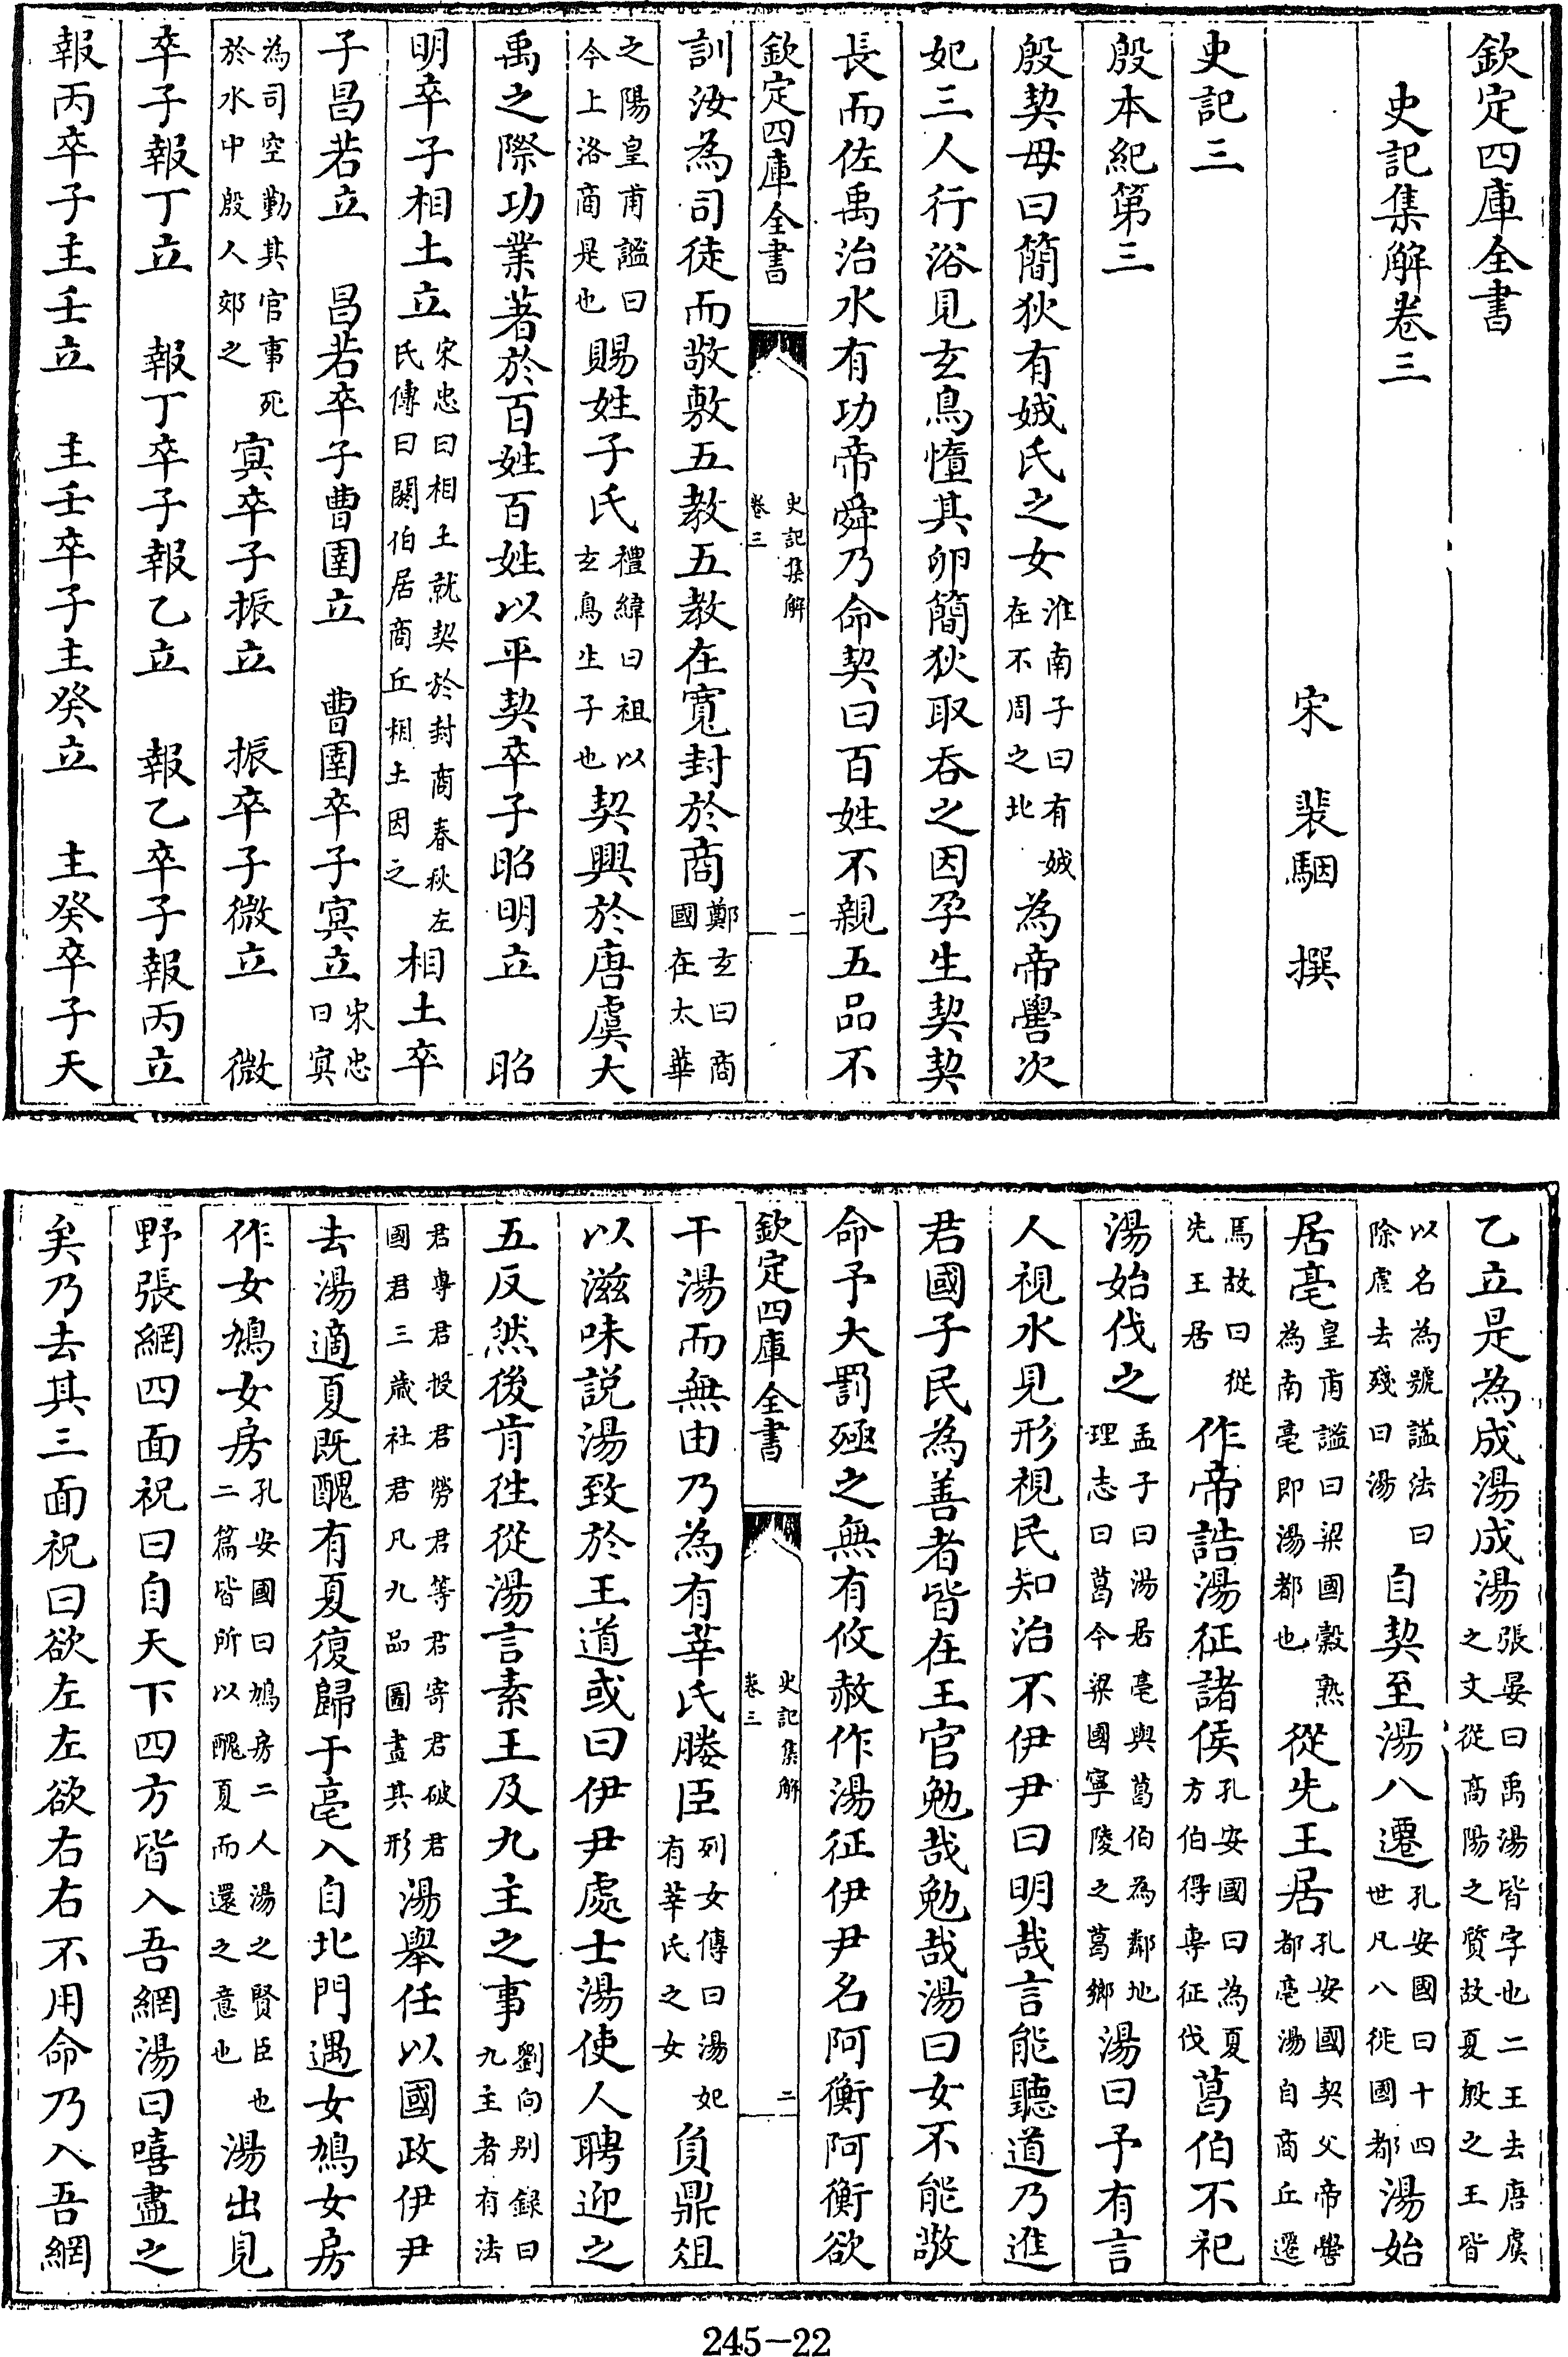 欽定四庫全書
史記集解卷三
宋 裴駰 撰
史記三
殷本紀第三
殷契母曰簡狄有娀氏之女淮南子曰有娀在不周之北為帝嚳次
妃三人行浴見玄鳥墮其卵簡狄取吞之因孕生契契
長而佐禹治水有功帝舜乃命契曰百姓不親五品不
欽定四庫全書 史記集解卷三 一
訓汝為司徒而敬敷五教五教在寛封於商鄭玄曰商國在太華
之陽皇甫謐曰今上洛商是也賜姓子氏禮緯曰祖以玄鳥生子也契興於唐虞大
禹之際功業著於百姓百姓以平契卒子昭明立 昭
明卒子相土立宋忠曰相土就契於封商春秋左氏傳曰閼伯居商丘相土因之相土卒
子昌若立 昌若卒子曹圉立 曹圉卒子冥立宋忠曰冥
為司空勤其官事死於水中殷人郊之冥卒子振立 振卒子微立 微
卒子報丁立 報丁卒子報乙立 報乙卒子報丙立
報丙卒子主壬立 主壬卒子主癸立 主癸卒子天
乙立是為成湯成湯張晏曰禹湯皆字也二王去唐虞之文從高陽之質故夏殷之王皆
以名為號諡法曰除虐去殘曰湯自契至湯八遷孔安國曰十四世凡八徙國都湯始
居亳皇甫謐曰梁國穀熟為南亳即湯都也從先王居孔安國契父帝嚳都亳湯自商丘遷
焉故曰從先王居作帝誥湯征諸侯孔安國曰為夏方伯得專征伐葛伯不祀
湯始伐之孟子曰湯居亳與葛伯為鄰地理志曰葛今梁國寧陵之葛鄉湯曰予有言
人視水見形視民知治不伊尹曰明哉言能聽道乃進
君國子民為善者皆在王官勉哉勉哉湯曰女不能敬
命予大罰殛之無有攸赦作湯征伊尹名阿衡阿衡欲
欽定四庫全書 史記集解卷三 二
干湯而無由乃為有莘氏媵臣列女傳曰湯妃有莘氏之女負鼎俎
以滋味説湯致於王道或曰伊尹處士湯使人聘迎之
五反然後肯徃從湯言素王及九主之事劉向别録曰九主者有法
君專君授君勞君等君寄君破君國君三歲社君凡九品圖畫其形湯舉任以國政伊尹
去湯適夏既醜有夏復歸于亳入自北門遇女鳩女房
作女鳩女房孔安國曰鳩房二人湯之賢臣也二篇皆所以醜夏而還之意也湯出見
野張網四面祝曰自天下四方皆入吾網湯曰嘻盡之
矣乃去其三面祝曰欲左左欲右右不用命乃入吾網
245-22